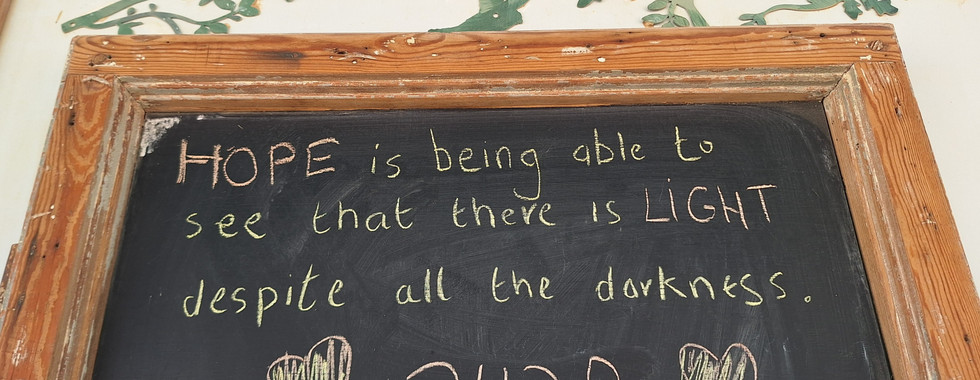 HOPE is being able to
see that there is LIGHT
despite all the darkness.